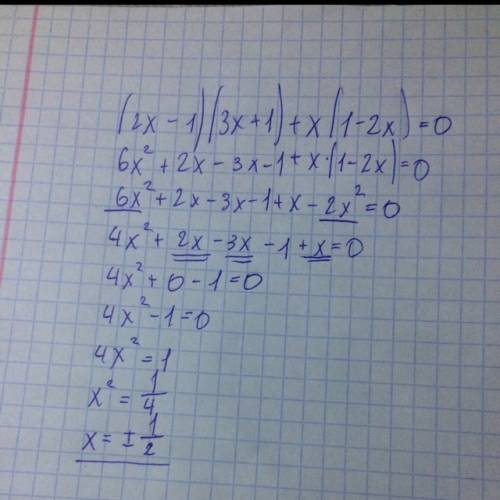 (2x - 1)(3x + 1) + x(1 - 2x) = 0
6x² + 2x - 3x - 1 + x·(1 - 2x) = 0
6x² + 2x - 3x - 1 + x - 2x² = 0
4x² + 2x - 3x - 1 + x = 0
4x² + 0 - 1 = 0
4x² - 1 = 0
4x² = 1
x² = 1/4
x = ± 1/2